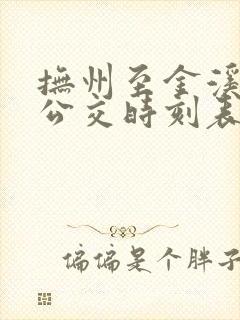 撫州至金溪
公交時刻表
偏偏是个胖子